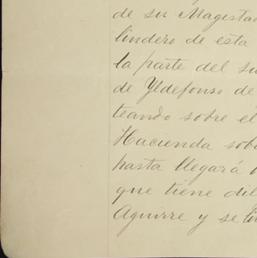 de su Magestad
lindero de esta
la parte del su
de Yldefonso de
teando sobre el
Hacienda sob
hasta llegará
que tiene del
Aguirre y se